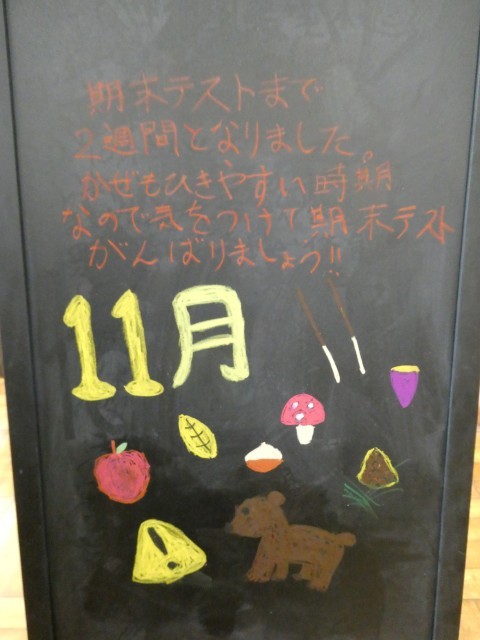 期末テストまで
2週間となりました。
かぜもひきやすい時期
なので気をつけて、期末テスト
がんばりましょう!!
11月
!